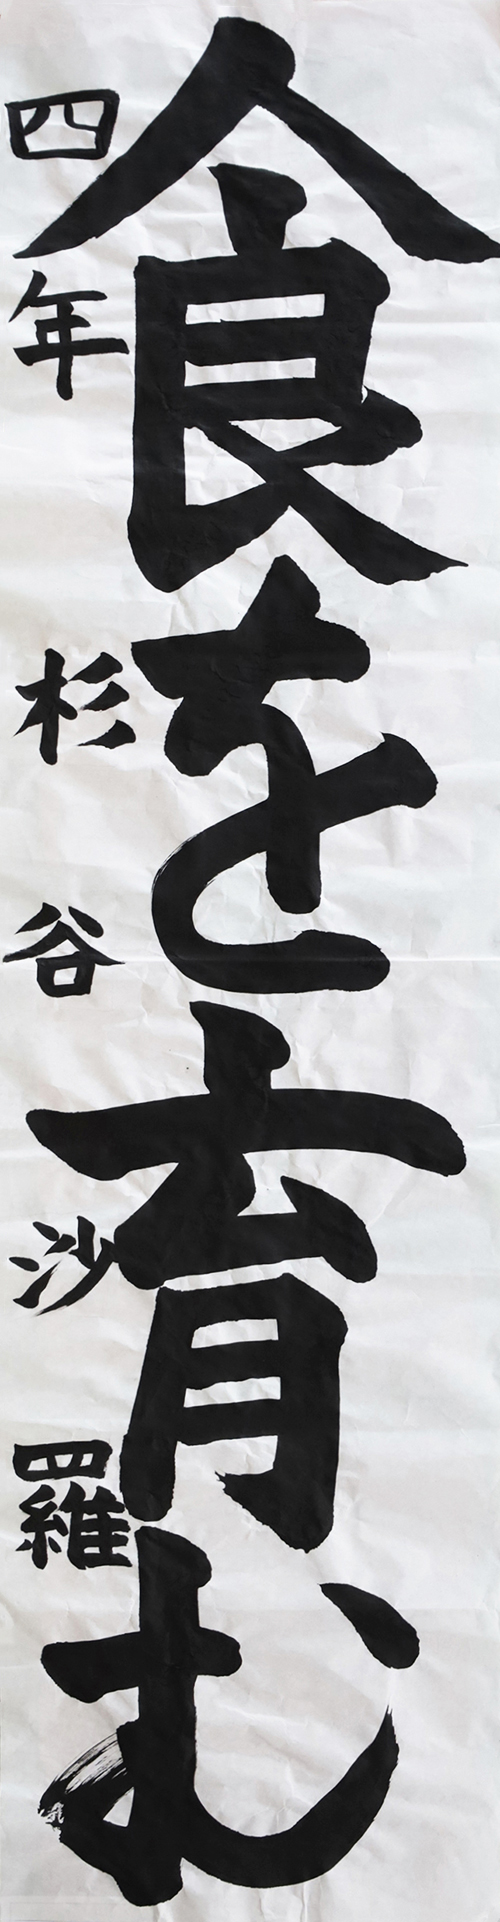 食を育む
四年 杉谷沙羅